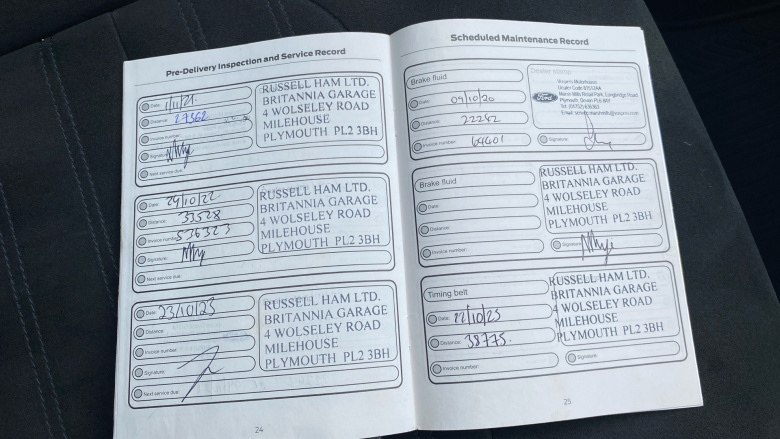 Pre-Delivery Inspection and Service Record
Date: 1/11/21.
Distance: 27362
Invoice number:
Signature:
Next service due:
RUSSELL HAM LTD.
BRITANNIA GARAGE
4 WOLSELEY ROAD
MILEHOUSE
PLYMOUTH PL2 3BH
Date: 24/10/22
Distance: 33528
Invoice number: 536323
Signature:
Next service due:
RUSSELL HAM LTD.
BRITANNIA GARAGE
4 WOLSELEY ROAD
MILEHOUSE
PLYMOUTH PL2 3BH
Date: 23/10/23
Distance:
Invoice number:
Signature:
Next service due:
RUSSELL HAM LTD.
BRITANNIA GARAGE
4 WOLSELEY ROAD
MILEHOUSE
PLYMOUTH PL2 3BH
24
Scheduled Maintenance Record
Brake fluid
Date: 09/10/20
Distance: 22242
Invoice number: 64601
Dealer stamp:
Ford
Marsh Mills Retail Park, Longbridge Road
Plymouth, Devon PL6 8AY
Signature:
Brake fluid
Date:
Distance:
Invoice number:
RUSSELL HAM LTD.
BRITANNIA GARAGE
4 WOLSELEY ROAD
MILEHOUSE
PLYMOUTH PL2 3BH
Signature:
Timing belt
Date: 22/10/25
Distance: 38775.
Invoice number:
RUSSELL HAM LTD.
BRITANNIA GARAGE
4 WOLSELEY ROAD
MILEHOUSE
PLYMOUTH PL2 3BH
Signature:
25